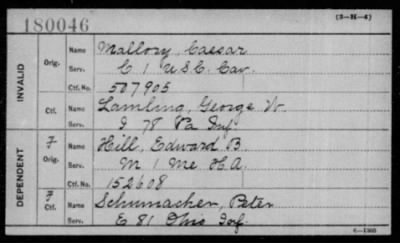 180046
(3-H-4)
INVALID
Orig. Name Mallory, Caesar
Serv. C 1 U S C. Cav.
Ctf. No. 507905
Ctf. Name Lamling, George W.
Serv. I 78 Pa Inf.
DEPENDENT
F Orig. Name Hill, Edward B.
Serv. M 1 Me H.A.
Ctf. No. 152608
F Ctf. Name Schumacher, Peter
Serv. E 81 Ohio Inf.